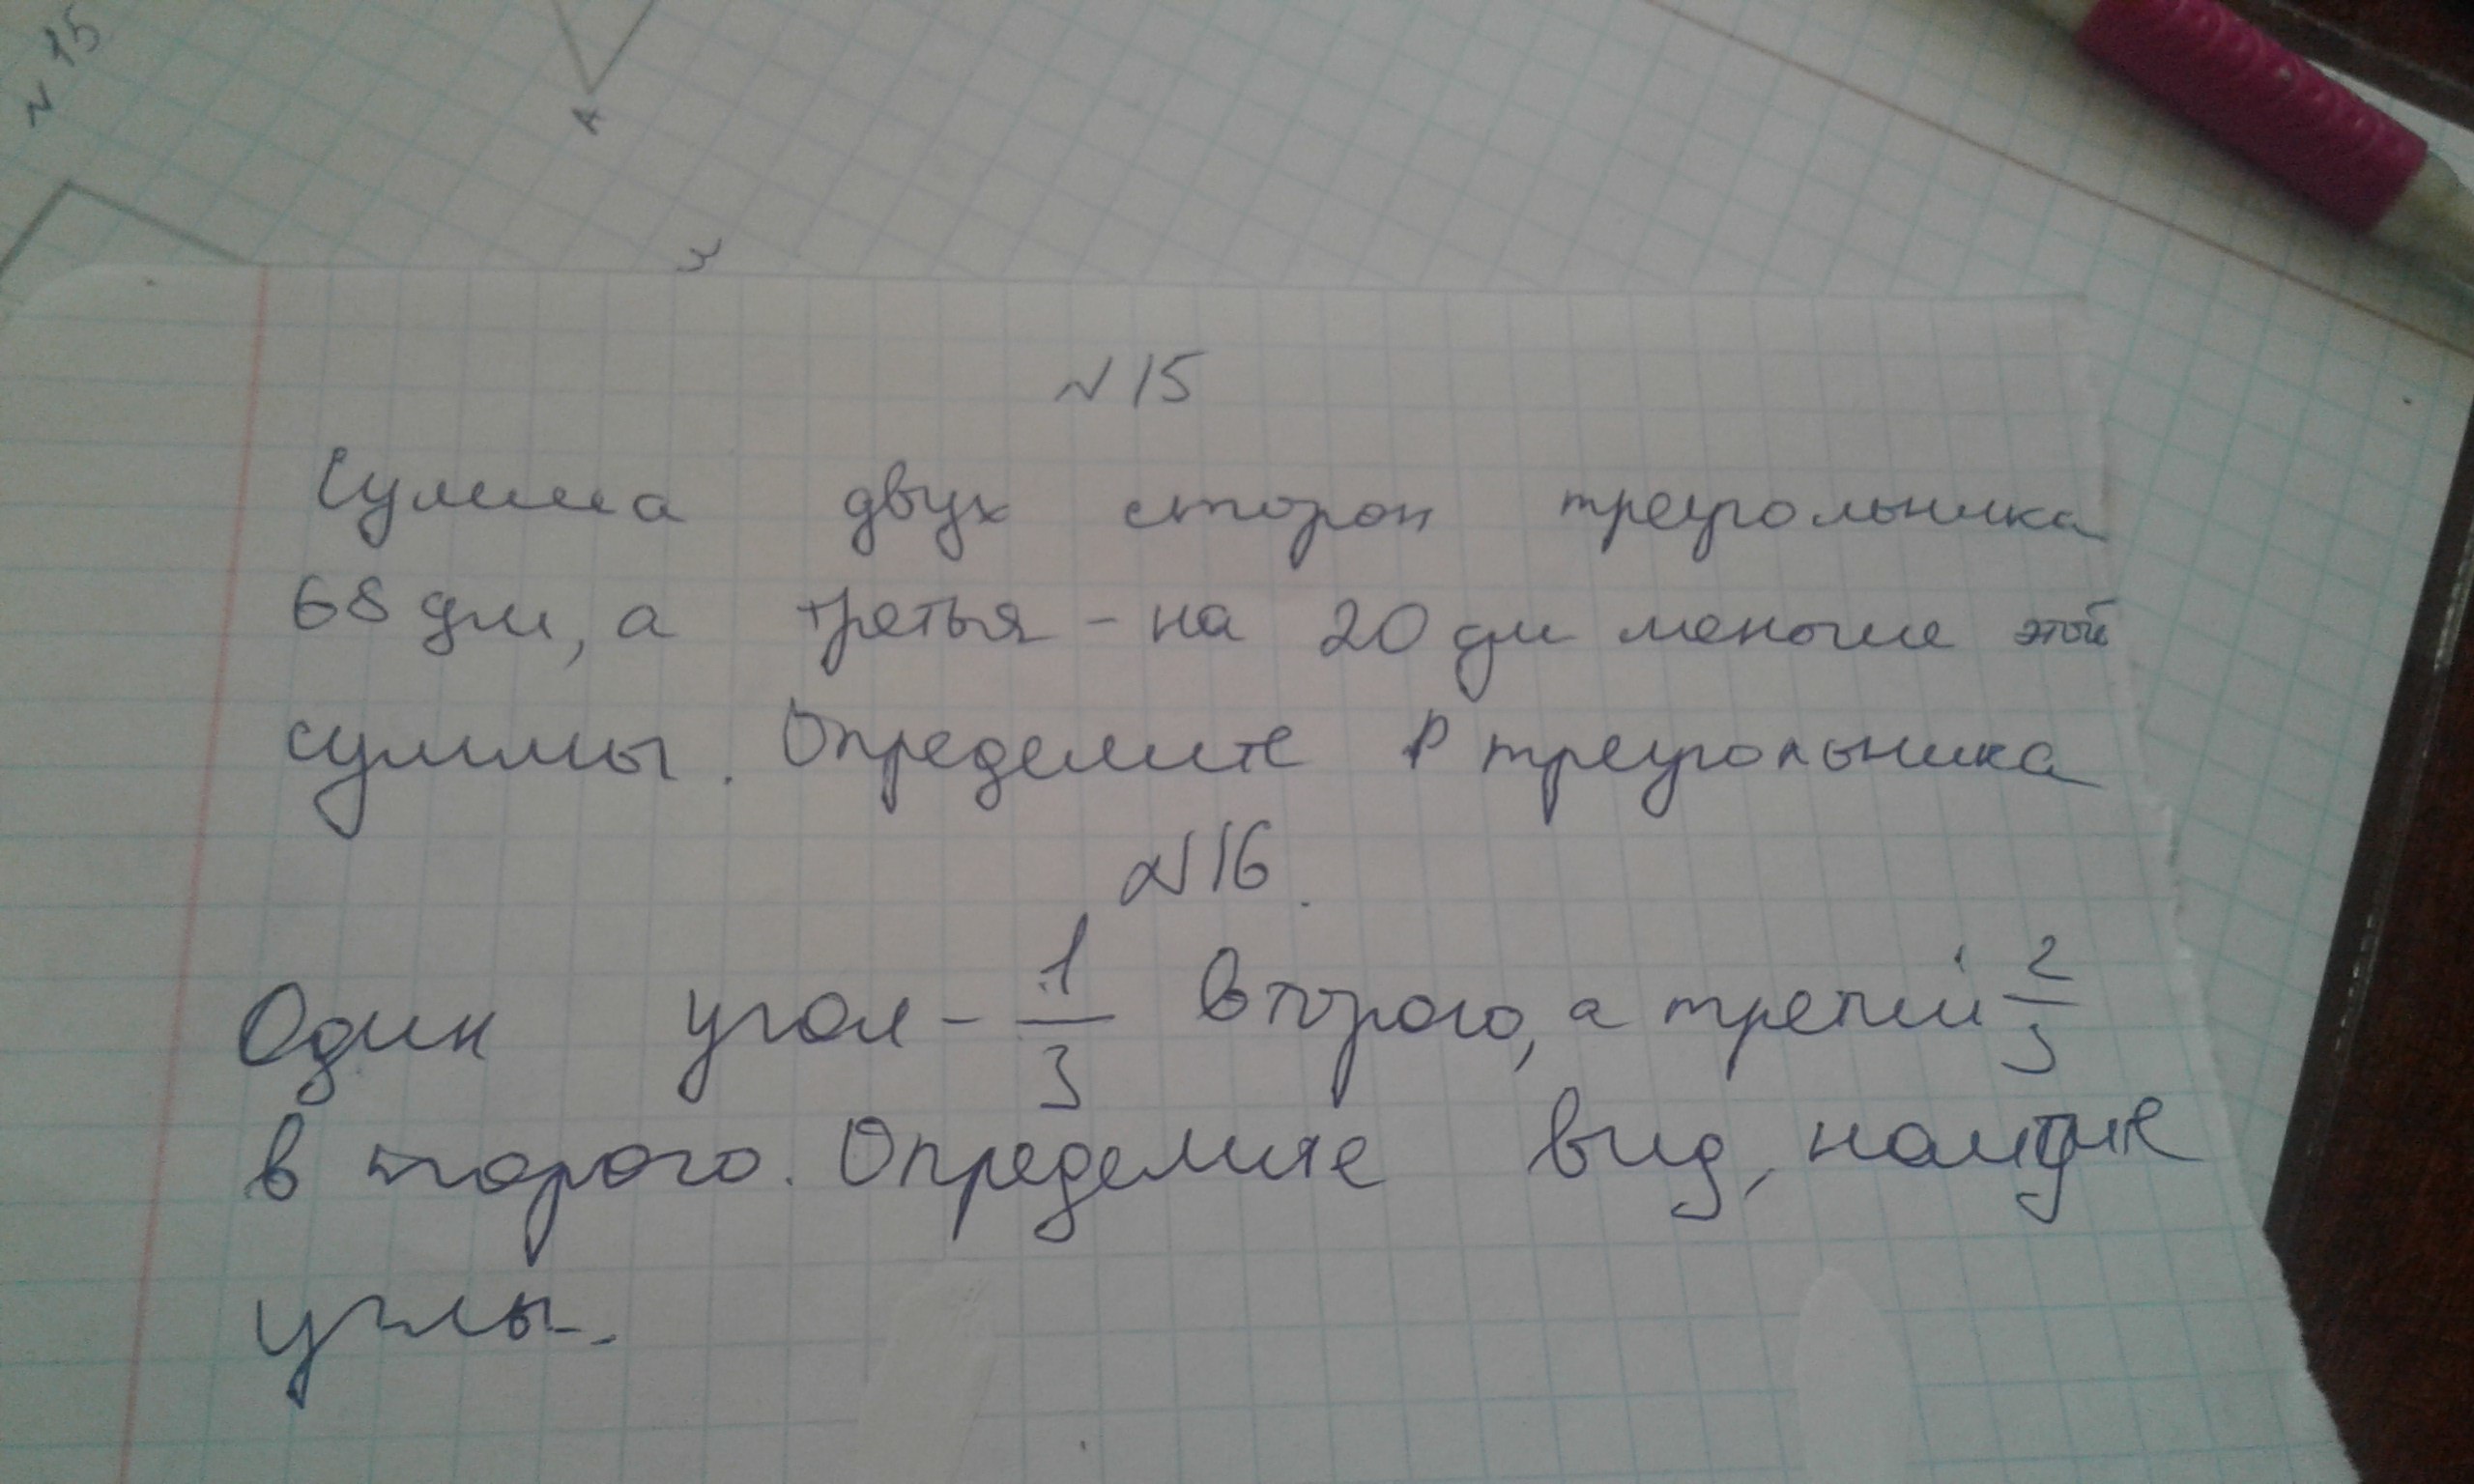 N 15
A
N 15
Сумма двух сторон треугольника
68 дм, а третья - на 20 дм меньше этой
суммы. Определите P треугольника
N 16.
Один угол - 1/3 второго, а третий 2/3
второго. Определите вид, найдите
углы.